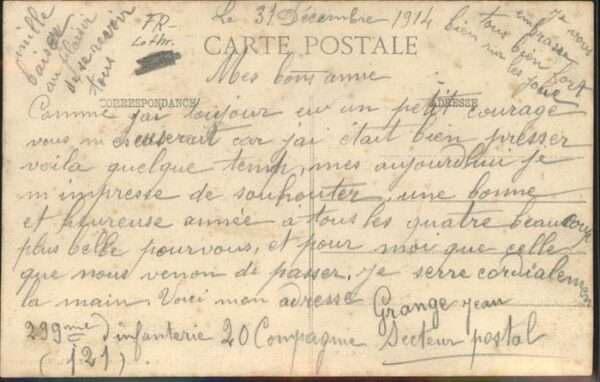 Le 31 Décembre 1914
FR-
Lothr.
CARTE POSTALE
mille
baiser
au plaisir
de se revoir
tous
je vous
embrasse
tous bien fort
bien sur les joue
Mes bons amie
CORRESPONDANCE
ADRESSE
Comme j'ai toujour eu un petit courage
vous m'excuserait car j'ai était bien presser
voila quelque temp, mes aujourdhui je
m'impresse de souhouter, une bonne
et heureuse année a tous les quatre beaucoup
plus belle pour vous, et pour moi que celle
que nous venon de passer, je serre cordialemen
la main. Voici mon adresse Grange Jean
299me d'infanterie 20 Compagnie Secteur postal
(121)